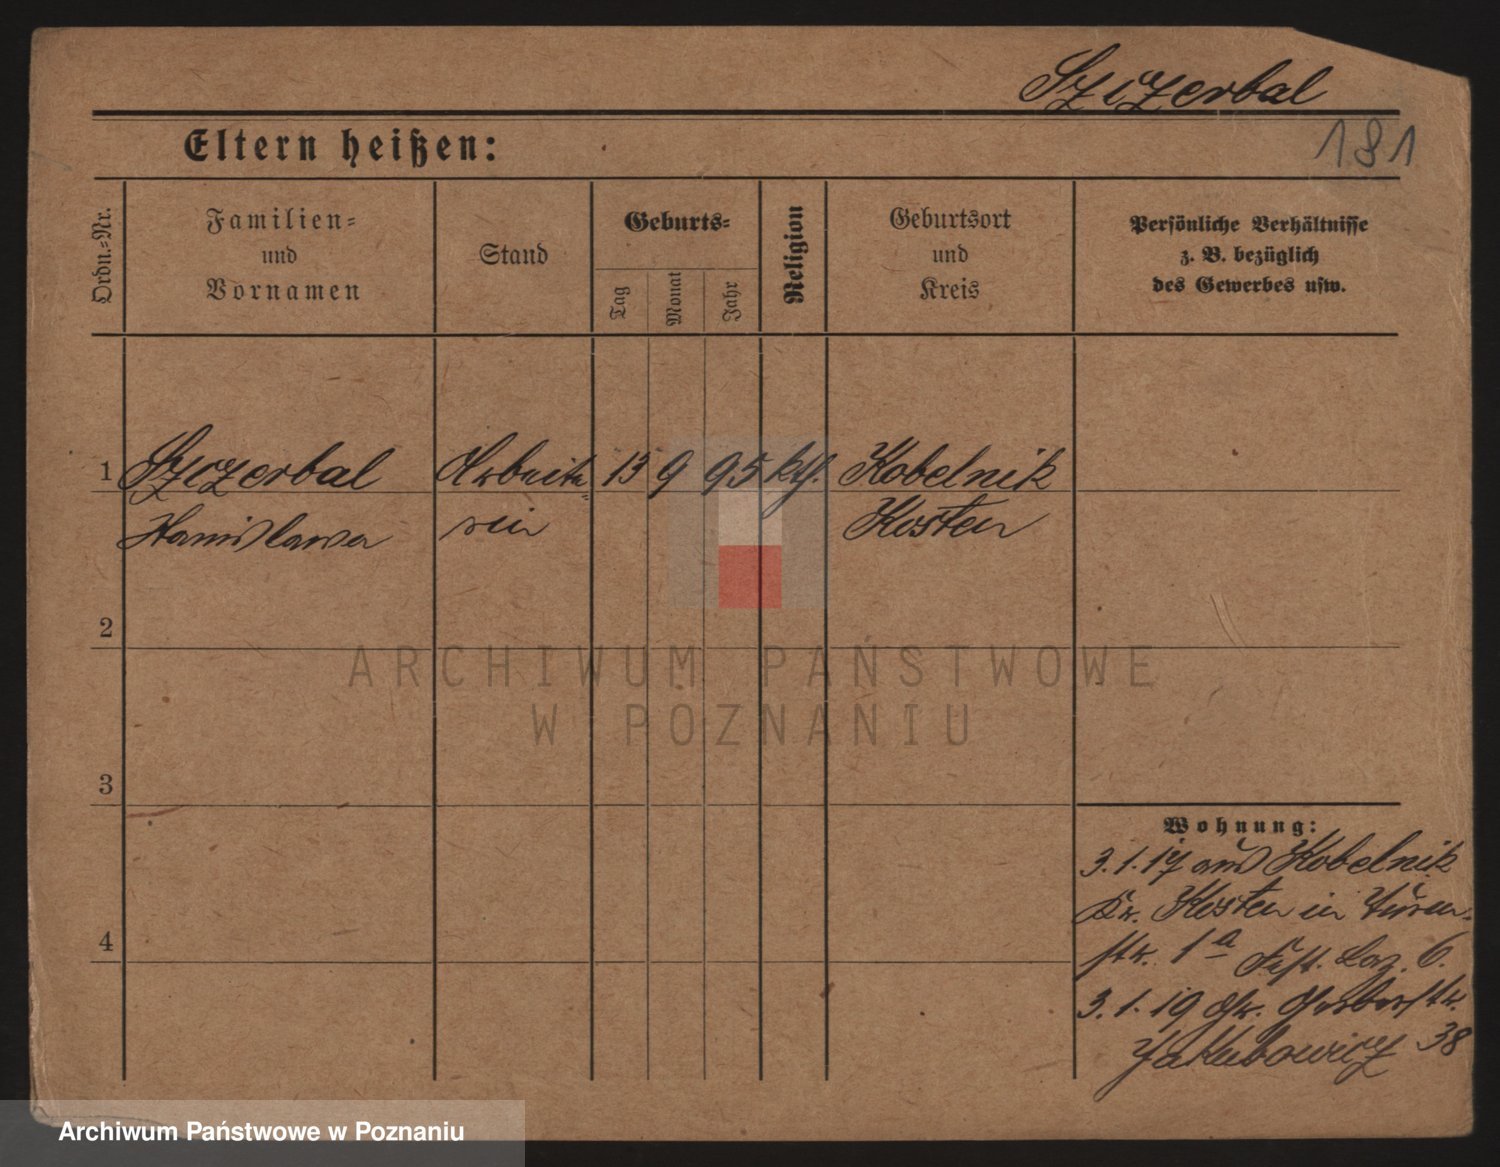 Szczerbal
181
Eltern heißen:
Ordn.=Nr.
Familien=
und
Vornamen
Stand
Geburts=
Tag
Monat
Jahr
Religion
Geburtsort
und
Kreis
Persönliche Verhältnisse
z. B. bezüglich
des Gewerbes usw.
1 Szczerbal Arbeite= 13 9 95 kth. Kobelnik
Stanislawa rin Kosten
2
3
4
ARCHIWUM PAŃSTWOWE
W POZNANIU
Wohnung:
3.1.17 aus Kobelnik
Kr. Kosten in Turm=
str. 1a Fest. Laz. 6.
3.1.19 Gr. Gerberstr.
Jakubowicz 38
Archiwum Państwowe w Poznaniu